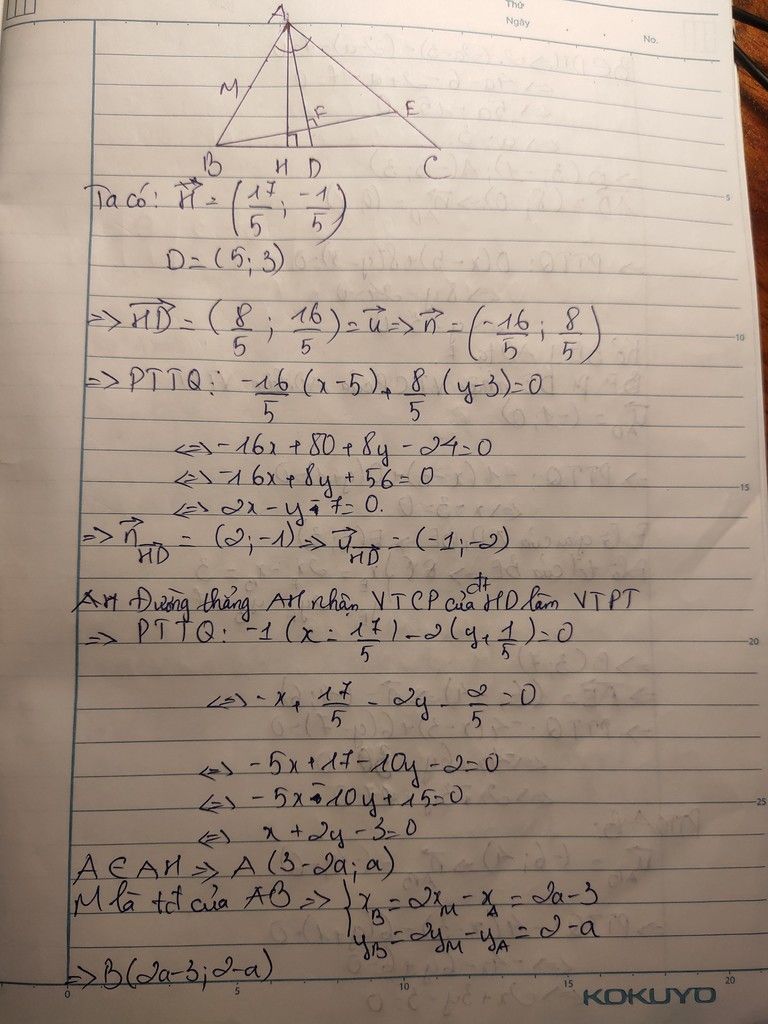 Thứ
Ngày
No.
A
M
F
E
B H D C
Ta có: H = (17/5; -1/5)
D = (5; 3)
=> HD = (8/5; 16/5) = u => n = (-16/5; 8/5)
=> PTTQ: -16/5 (x-5) + 8/5 (y-3) = 0
<=> -16x + 80 + 8y - 24 = 0
<=> -16x + 8y + 56 = 0
<=> 2x - y - 7 = 0.
=> n HD = (2; -1) => u HD = (-1; -2)
AH Đường thẳng AH nhận VTCP của đt HD làm VTPT
=> PTTQ: -1 (x - 17/5) - 2 (y + 1/5) = 0
<=> -x + 17/5 - 2y - 2/5 = 0
<=> -5x + 17 - 10y - 2 = 0
<=> -5x - 10y + 15 = 0
<=> x + 2y - 3 = 0
A ∈ AH => A (3 - 2a; a)
M là tđ của AB => { x_B = 2x_M - x_A = 2a - 3
y_B = 2y_M - y_A = 2 - a
=> B(2a-3; 2-a)
5
10
15
20
25
0 5 10 15 20
KOKUYO